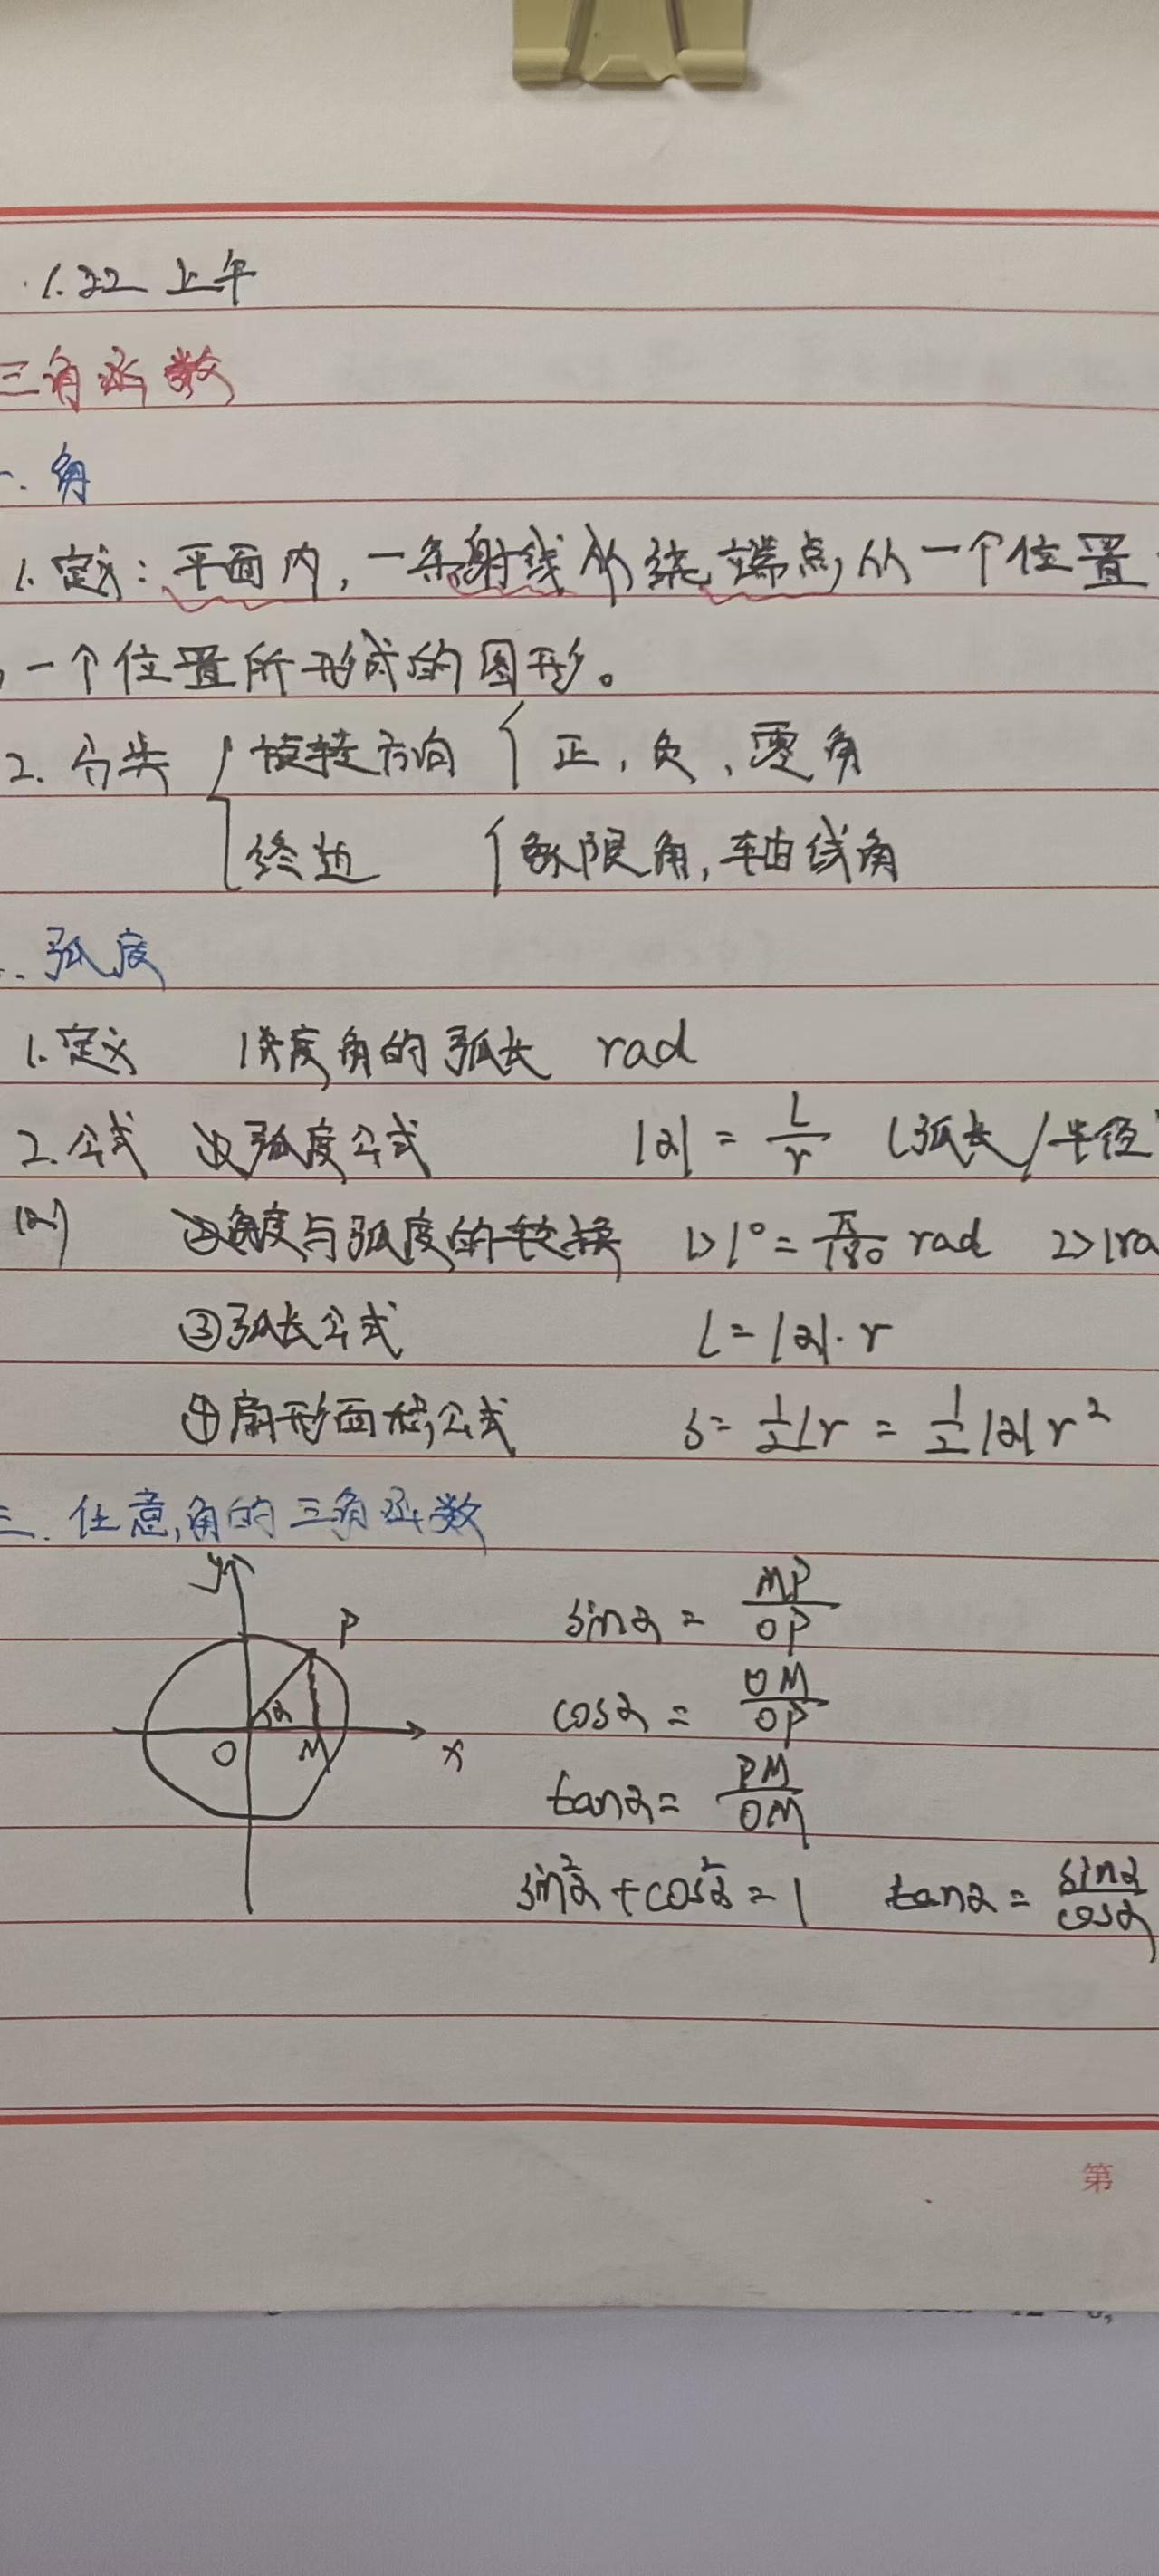 1.22 上午
三角函数
一. 角
1. 定义: 平面内, 一条射线从绕端点, 从一个位置
一个位置所形成的图形。
2. 分类 { 旋转方向 { 正, 负, 零角
终边 { 象限角, 轴线角
弧度
1. 定义 1长度角的弧长 rad
2. 公式 ① 弧度公式 |α| = L/r (弧长/半径
② 角度与弧度的转换 1> 1° = π/180 rad 2> 1ra
③ 弧长公式 L = |α|·r
④ 扇形面积公式 S = 1/2 Lr = 1/2 |α| r²
三. 任意角的三角函数
y
P
sinα = MP/OP
α
cosα = OM/OP
O M x
tanα = PM/OM
sin²α + cos²α = 1 tanα = sinα/cosα
第